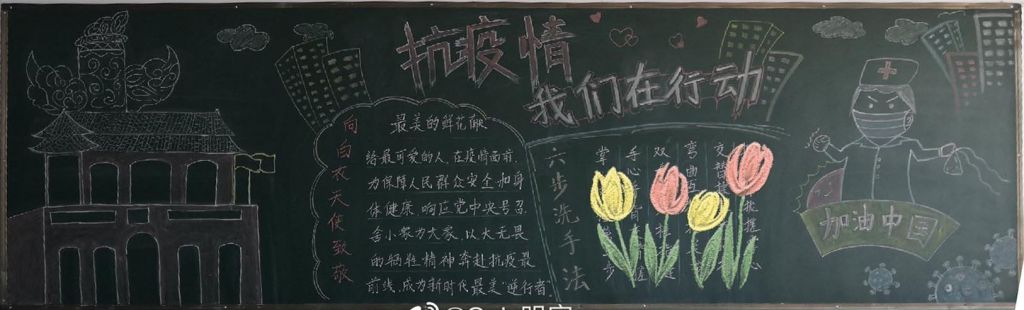 抗疫情
我们在行动
向白衣天使致敬
最美的鲜花献
给最可爱的人,在疫情面前,
为保障人民群众安全和身
体健康,响应党中央号召
舍小家为大家,以大无畏
的牺牲精神奔赴抗疫最
前线,成为新时代最美"逆行者"
六步洗手法
掌
手心
双
弯曲
交替
步
加油中国